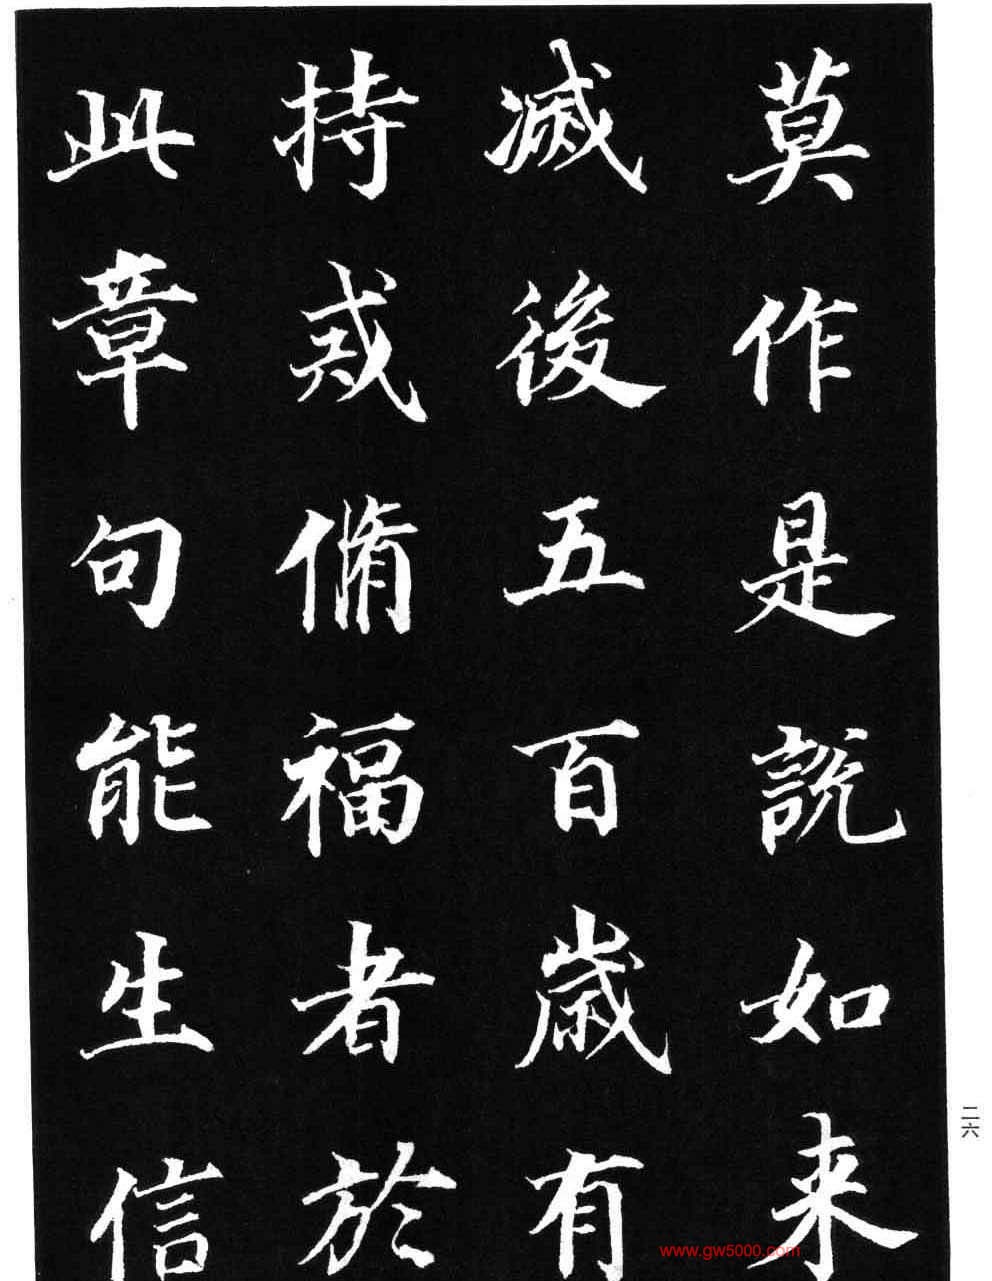 莫作是說如来
滅後五百歲有
持戒脩福者於
此章句能生信
二六
www.gw5000.com